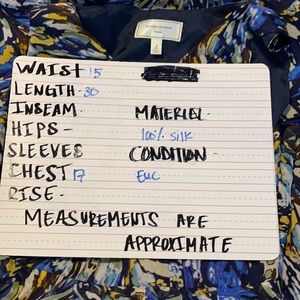 WAIST 15
LENGTH - 30
INSEAM -
MATERIAL -
HIPS -
100% silk
SLEEVES
CONDITION -
CHEST 17
EUC
RISE -
MEASUREMENTS ARE
APPROXIMATE